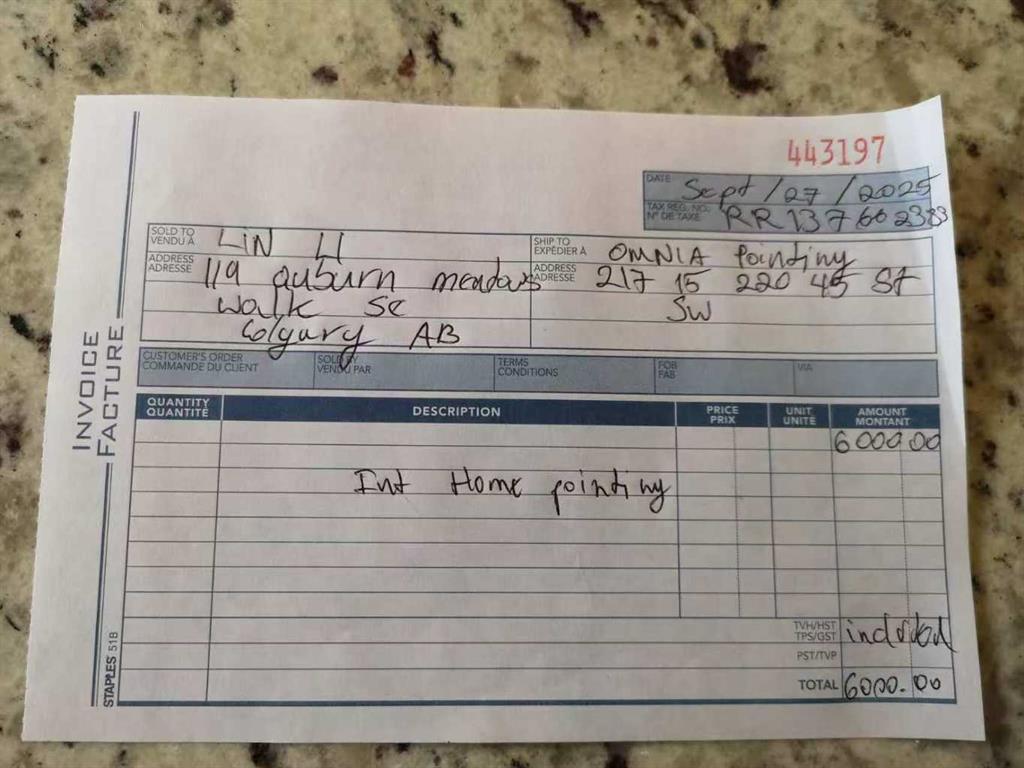 443197
DATE Sept / 27 / 2025
TAX REG. NO. N° DE TAXE RR 137602383
INVOICE
FACTURE
SOLD TO
VENDU À LIN LI
ADDRESS
ADRESSE 119 auburn meadows
walk se
Calgary AB
SHIP TO
EXPÉDIER À OMNIA Painting
ADDRESS
ADRESSE 217 15 220 45 St
SW
CUSTOMER'S ORDER
COMMANDE DU CLIENT
SOLD BY
VENDU PAR
TERMS
CONDITIONS
FOB
FAB
VIA
QUANTITY
QUANTITÉ
DESCRIPTION
PRICE
PRIX
UNIT
UNITÉ
AMOUNT
MONTANT
6000.00
Int Home painting
TVH/HST
TPS/GST included
PST/TVP
TOTAL 6000.00
STAPLES 51B